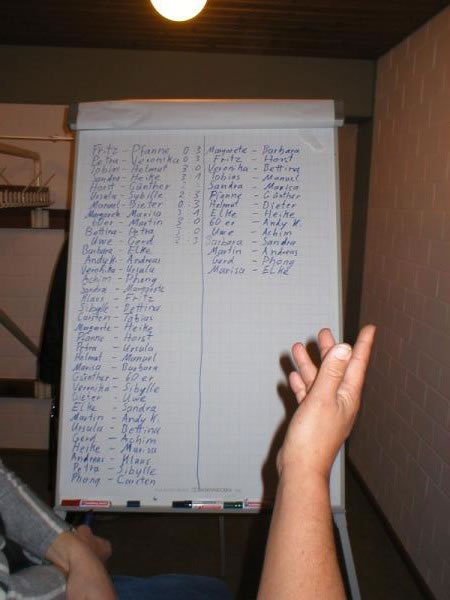 Fritz - Pfanne 0 3
Petra - Veronika 0 3
Tobias - Helmut 3 0
Sandra - Heike 3 1
Horst - Günther
Ursula - Sybille
Manuel - Dieter 0 3
Margarete - Marisa 3 1
60er - Martin 3 0
Bettina - Petra 3 0
Uwe - Gerd 2 3
Barbara - Elke
Andy K. - Andreas
Veronika - Ursula
Achim - Phong
Sandra - Margarete
Klaus - Fritz
Sibylle - Bettina
Carsten - Tobias
Magarete - Heike
Pfanne - Horst
Petra - Ursula
Helmut - Manuel
Marisa - Barbara
Günther - 60er
Veronika - Sibylle
Dieter - Uwe
Elke - Sandra
Martin - Andy K.
Ursula - Bettina
Gerd - Achim
Heike - Marisa
Andreas - Klaus
Petra - Sibylle
Phong - Carsten
Magarete - Barbara
Fritz - Horst
Veronika - Bettina
Tobias - Manuel
Sandra - Marisa
Pfanne - Günther
Helmut - Dieter
Elke - Heike
60er - Andy K.
Uwe - Achim
Barbara - Sandra
Martin - Andreas
Gerd - Phong
Marisa - Elke